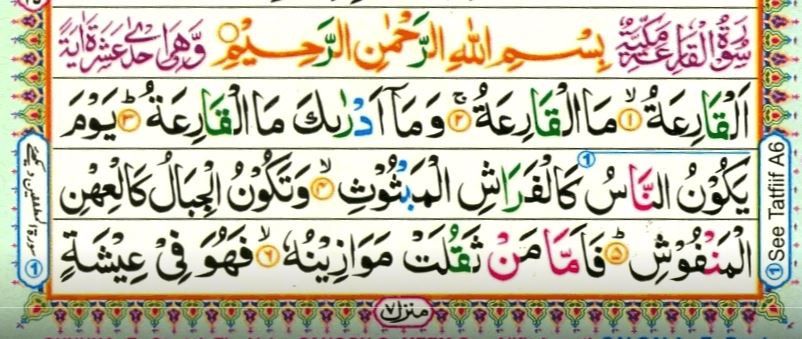 سُوْرَةُ الْقَارِعَةِ مَكِّيَّةٌ بِسْمِ اللّٰهِ الرَّحْمٰنِ الرَّحِيْمِ وَّهِيَ اِحْدٰى عَشَرَةَ اٰيَةً
اَلْقَارِعَةُ ۙ‏﴿۱﴾ مَا الْقَارِعَةُ ۚ‏﴿۲﴾ وَمَاۤ اَدْرٰىكَ مَا الْقَارِعَةُ ؕ‏﴿۳﴾ يَوْمَ
يَكُوْنُ النَّاسُ كَالْفَرَاشِ الْمَبْثُوْثِ ۙ‏﴿۴﴾ وَتَكُوْنُ الْجِبَالُ كَالْعِهْنِ
الْمَنْفُوْشِ ؕ‏﴿۵﴾ فَاَمَّا مَنْ ثَقُلَتْ مَوَازِيْنُهٗ ۙ‏﴿۶﴾ فَهُوَ فِيْ عِيْشَةٍ
منزل ۷
1 See Tatfiif A6
1